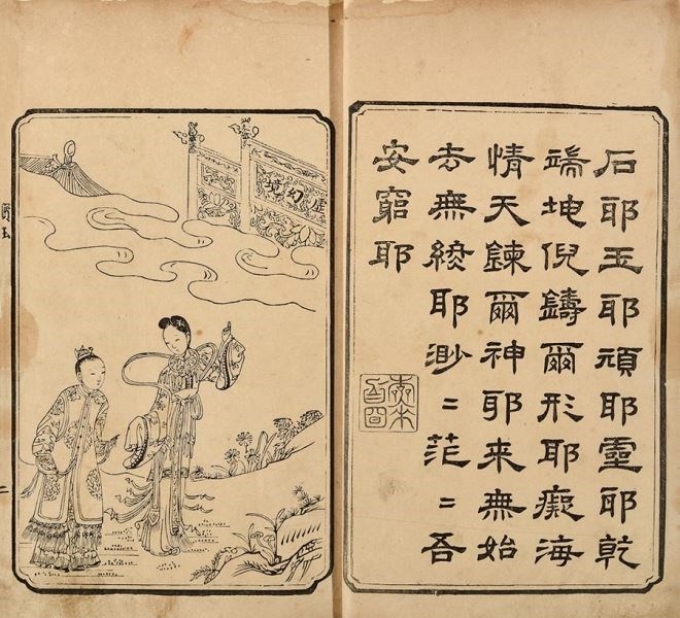 石耶玉耶頑耶靈耶乾
端坤倪鑄爾形耶癡海
情天鍊爾神耶来無始
去無終耶渺〻茫〻吾
安窮耶
虛幻境
寶玉
二